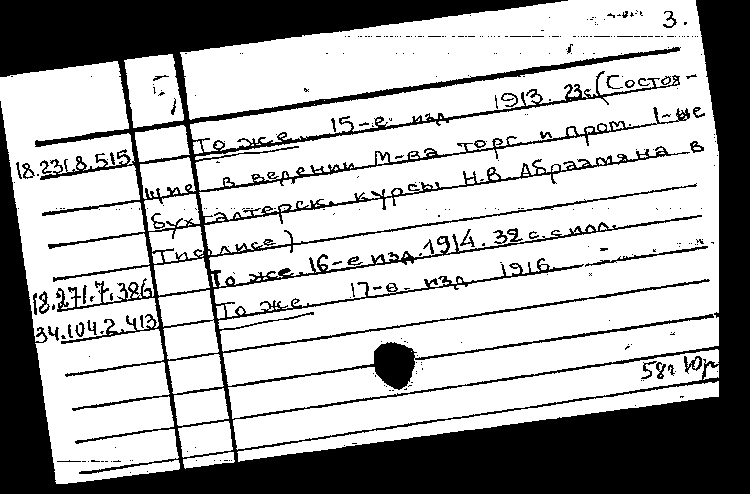 3.
18.231.8.515 То же. 15-е изд 1913. 23с. (Состоя-
щие в ведении М-ва торг и пром. 1-ые
бухгалтерск. курсы Н.В. Абраамяна в
Тифлисе)
18.271.7.386 То же. 16-е изд. 1914. 32 с. с илл.
34.104.2.413 То же. 17-е изд 1916
58г Юр